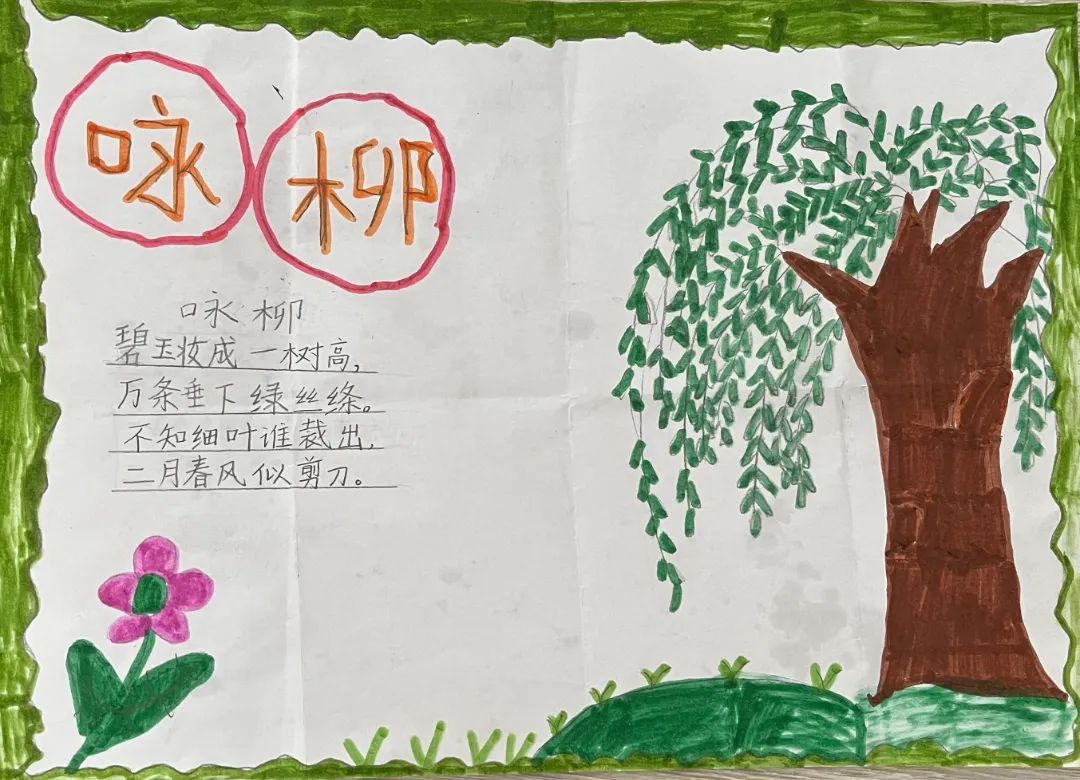 咏柳
咏柳
碧玉妆成一树高,
万条垂下绿丝绦。
不知细叶谁裁出,
二月春风似剪刀。